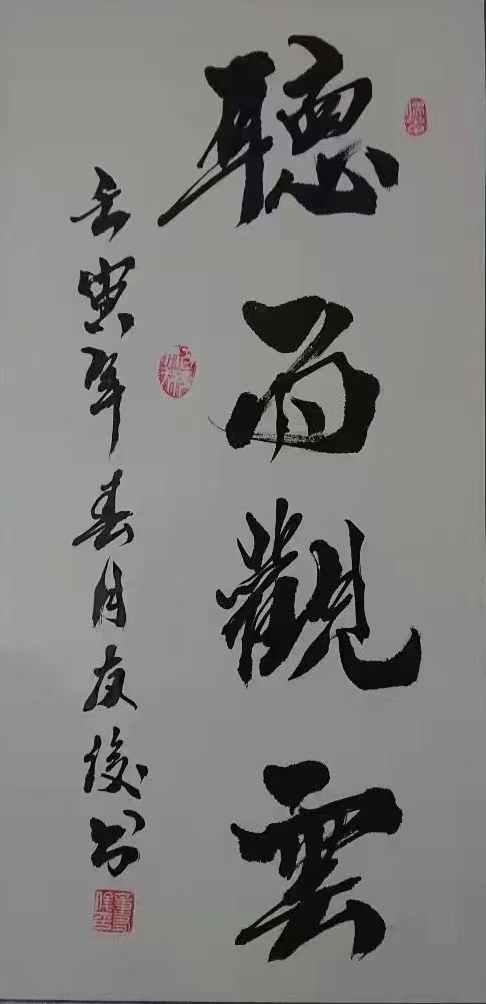 聽雨觀雲
壬寅年春月友俊书